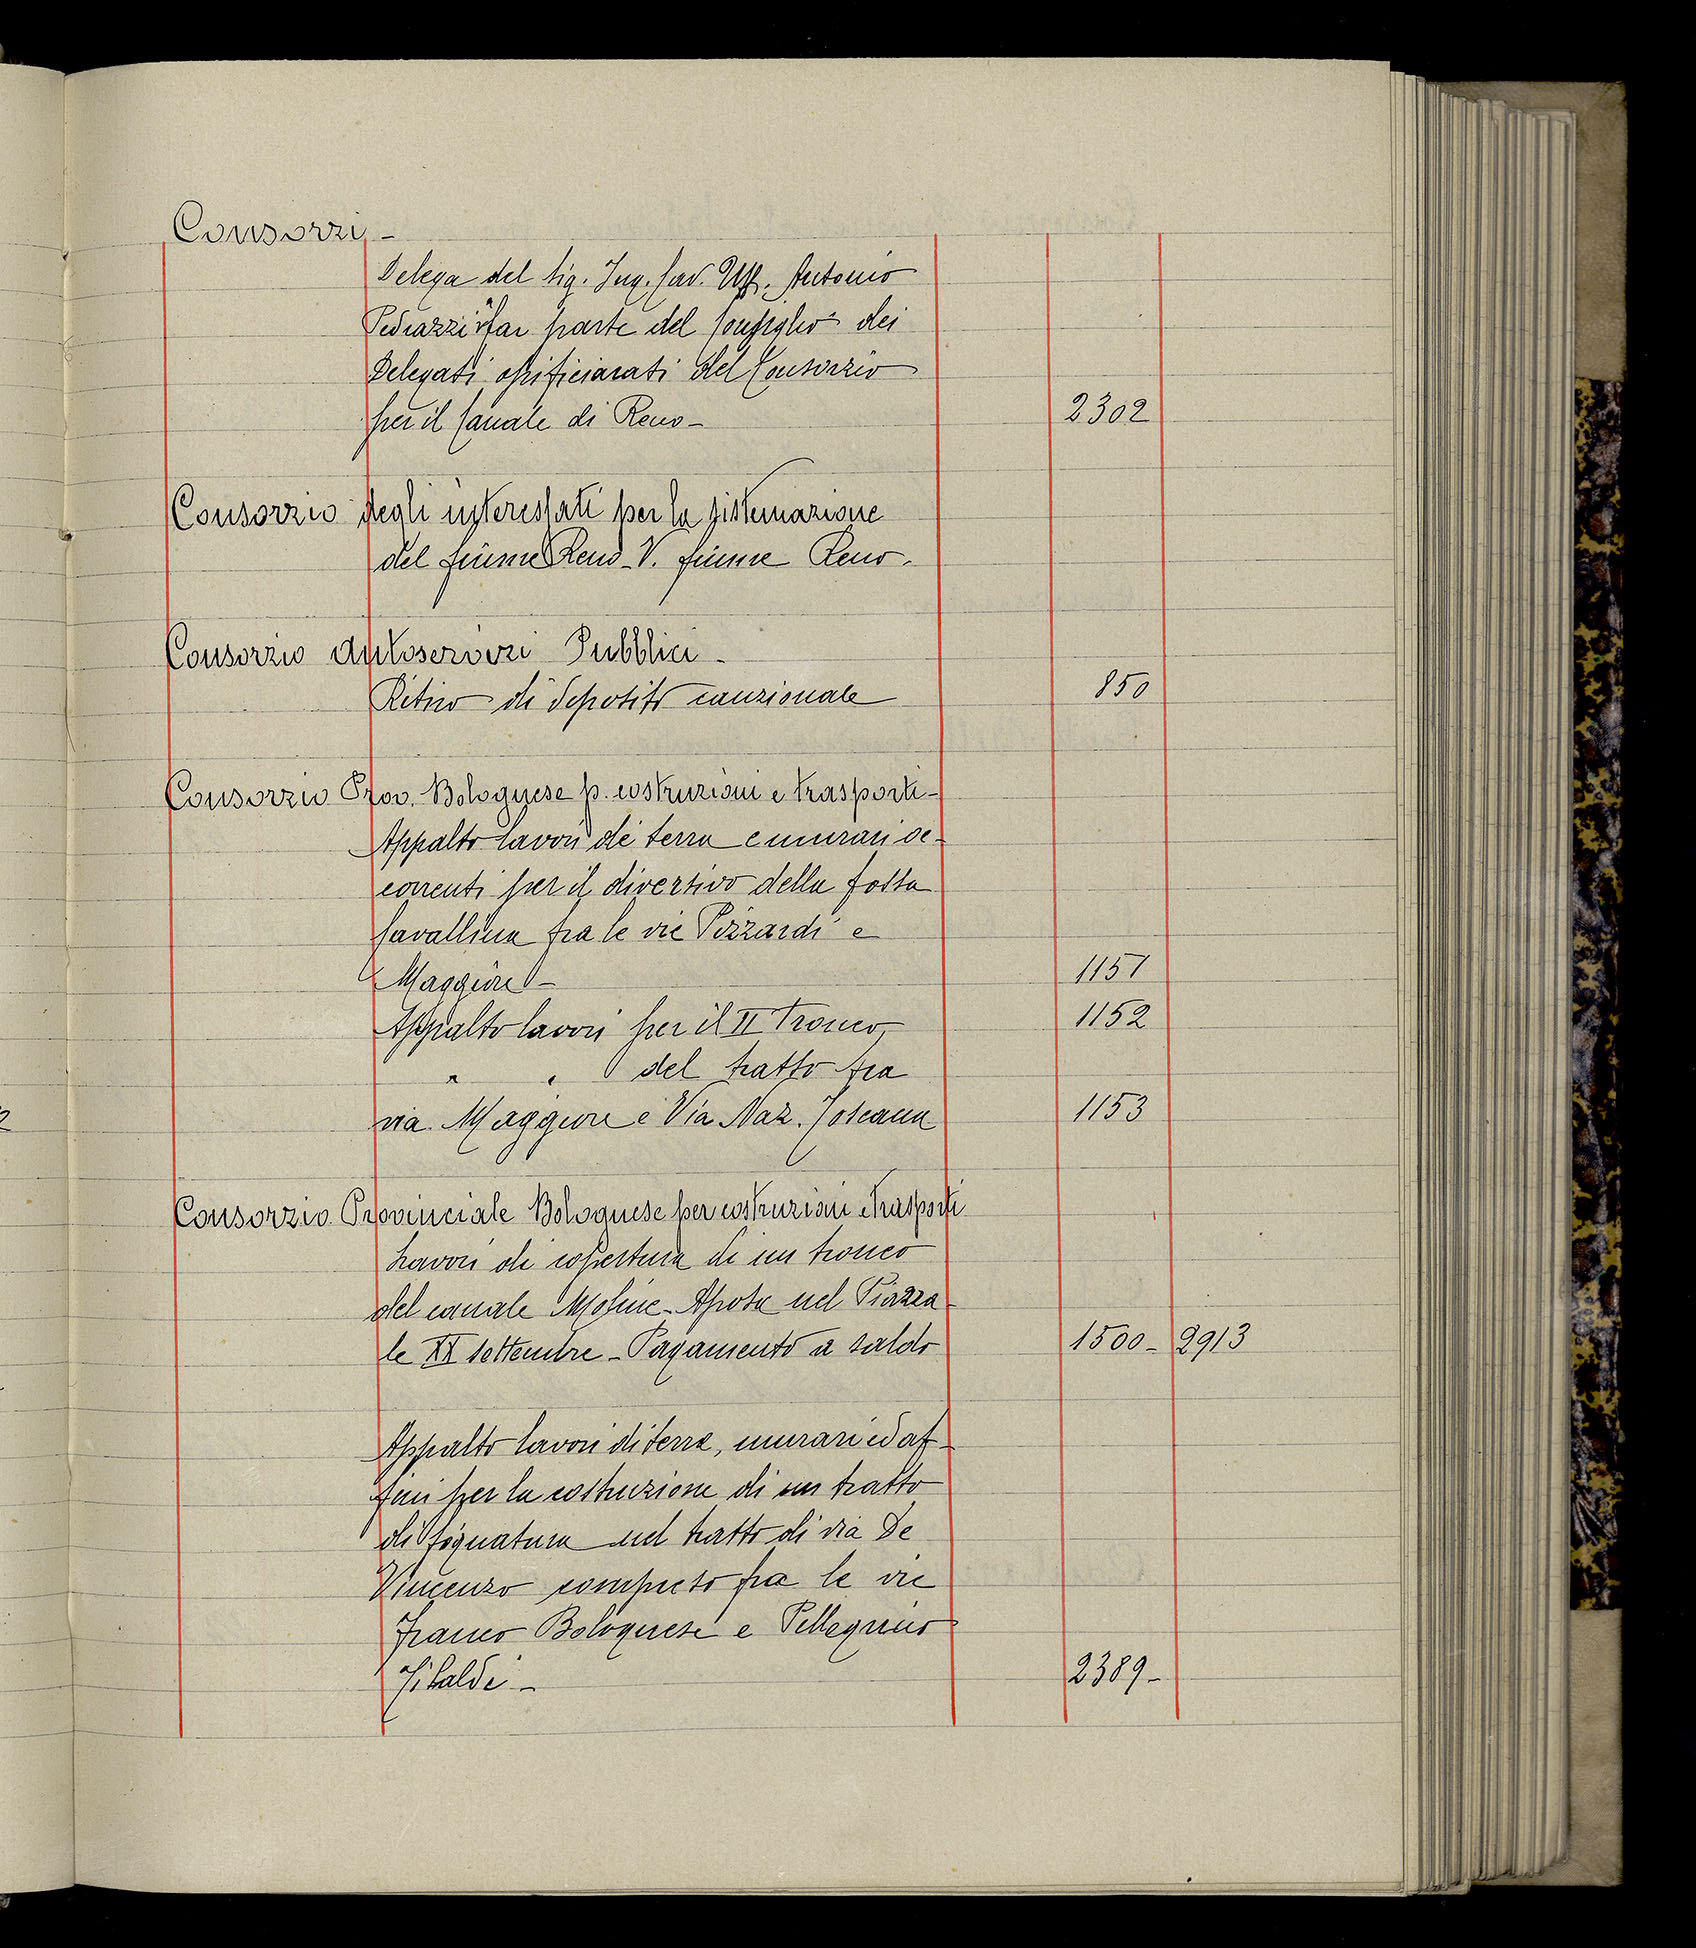 Consorzi -
Delega del Sig. Ing. Cav. Uff. Antonio
Pedrazzi a far parte del Consiglio dei
Delegati opificiarati del Consorzio
per il Canale di Reno - 2302
Consorzio degli interessati per la sistemazione
del fiume Reno - V. fiume Reno -
Consorzio Autoservizi Pubblici -
Ritiro di deposito cauzionale 850
Consorzio Prov. Bolognese p. costruzioni e trasporti -
Appalto lavori di terra e murari oc-
correnti per il diversivo della fossa
Cavallina fra le vie Pizzardi e
Maggiore - 1151
Appalto lavori per il II Tronco 1152
" " del tratto fra
via Maggiore e Via Naz. Toscana 1153
Consorzio Provinciale Bolognese per costruzioni e trasporti
Lavori di copertura di un tronco
del canale Moline - Aposa nel Piazza-
le XX Settembre - Pagamento a saldo 1500 - 2913
Appalto lavori di terra, murari ed af-
fini per la costruzione di un tratto
di fognatura nel tratto di via De
Vincenzo compreso fra le vie
Franco Bolognese e Pellegrino
Tibaldi - 2389 -